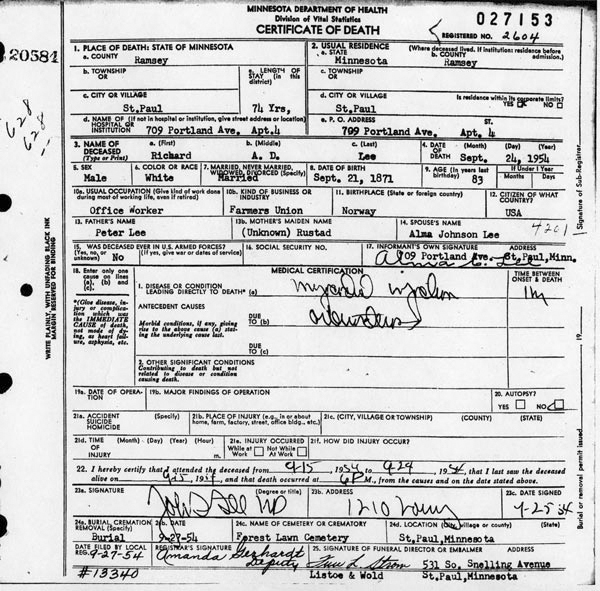 MINNESOTA DEPARTMENT OF HEALTH
Division of Vital Statistics
CERTIFICATE OF DEATH
027153
REGISTERED NO. 2604
20584
628
628
1. PLACE OF DEATH: STATE OF MINNESOTA
a. COUNTY
Ramsey
2. USUAL RESIDENCE (Where deceased lived. If institution: residence before admission).
a. STATE
Minnesota
b. COUNTY
Ramsey
b. TOWNSHIP OR
e. LENGTH OF STAY (in this district)
c. TOWNSHIP OR
c. CITY OR VILLAGE
St.Paul
74 Yrs,
d. CITY OR VILLAGE
St.Paul
Is residence within its corporate limits?
YES NO
d. NAME OF (If not in hospital or institution, give street address or location)
HOSPITAL OR INSTITUTION
709 Portland Ave. Apt.4
e. P. O. ADDRESS ST.
709 Portland Ave. Apt. 4
3. NAME OF DECEASED
(Type or Print)
a. (First) b. (Middle) c. (Last)
Richard A. D. Lee
4. DATE OF DEATH (Month) (Day) (Year)
Sept. 24, 1954
5. SEX
Male
6. COLOR OR RACE
White
7. MARRIED, NEVER MARRIED, WIDOWED, DIVORCED (Specify)
Married
8. DATE OF BIRTH
Sept. 21, 1871
9. AGE (In years last birthday)
83
If Under 1 Year
Months Days
10a. USUAL OCCUPATION (Give kind of work done during most of working life, even if retired)
Office Worker
10b. KIND OF BUSINESS OR INDUSTRY
Farmers Union
11. BIRTHPLACE (State or foreign country)
Norway
12. CITIZEN OF WHAT COUNTRY?
USA
13. FATHER'S NAME
Peter Lee
13b. MOTHER'S MAIDEN NAME
(Unknown) Rustad
14. SPOUSE'S NAME
Alma Johnson Lee
4201
15. WAS DECEASED EVER IN U.S. ARMED FORCES?
(Yes, no, or unknown) (If yes, give war or dates of service)
No
16. SOCIAL SECURITY NO.
17. INFORMANT'S OWN SIGNATURE ADDRESS
709 Portland Ave. St.Paul, Minn.
18. Enter only one cause on lines (a), (b), and (c).
*(Give disease, injury or complication which was the IMMEDIATE CAUSE of death, not mode of dying, as heart failure, asphyxia, etc.
MEDICAL CERTIFICATION
TIME BETWEEN ONSET & DEATH
1. DISEASE OR CONDITION LEADING DIRECTLY TO DEATH* (a)
ANTECEDENT CAUSES
Morbid conditions, if any, giving rise to the above cause (a) stating the underlying cause last.
DUE TO (b)
DUE TO (c)
2. OTHER SIGNIFICANT CONDITIONS
Contributing to death but not related to disease or condition causing death.
19a. DATE OF OPERATION
19b. MAJOR FINDINGS OF OPERATION
20. AUTOPSY?
YES NO
21a. ACCIDENT SUICIDE HOMICIDE (Specify)
21b. PLACE OF INJURY (e.g., in or about home, farm, factory, street, office bldg., etc.)
21c. (CITY, VILLAGE OR TOWNSHIP) (COUNTY) (STATE)
21d. TIME OF INJURY (Month) (Day) (Year) (Hour) m.
21e. INJURY OCCURRED
While at Work Not While At Work
21f. HOW DID INJURY OCCUR?
22. I hereby certify that I attended the deceased from 9/15 1954 to 9/24 1954, that I last saw the deceased
alive on 1954, and that death occurred at 6 P M., from the causes and on the date stated above.
23a. SIGNATURE (Degree or title)
MD
23b. ADDRESS
1210 Lowry
23c. DATE SIGNED
9-25-54
24a. BURIAL, CREMATION REMOVAL (Specify)
Burial
24b. DATE
9-27-54
24c. NAME OF CEMETERY OR CREMATORY
Forest Lawn Cemetery
24d. LOCATION (City, village or county) (State)
St.Paul, Minnesota
DATE FILED BY LOCAL REG.
9-27-54
#13340
REGISTRAR'S SIGNATURE
Amanda Gerhardt
Deputy
25. SIGNATURE OF FUNERAL DIRECTOR OR EMBALMER ADDRESS
Listoe & Wold
531 So. Snelling Avenue
St.Paul, Minnesota
WRITE PLAINLY, WITH UNFADING BLACK INK
MARGIN RESERVED FOR BINDING
Signature of Sub-Registrar
19
Burial or removal permit issued